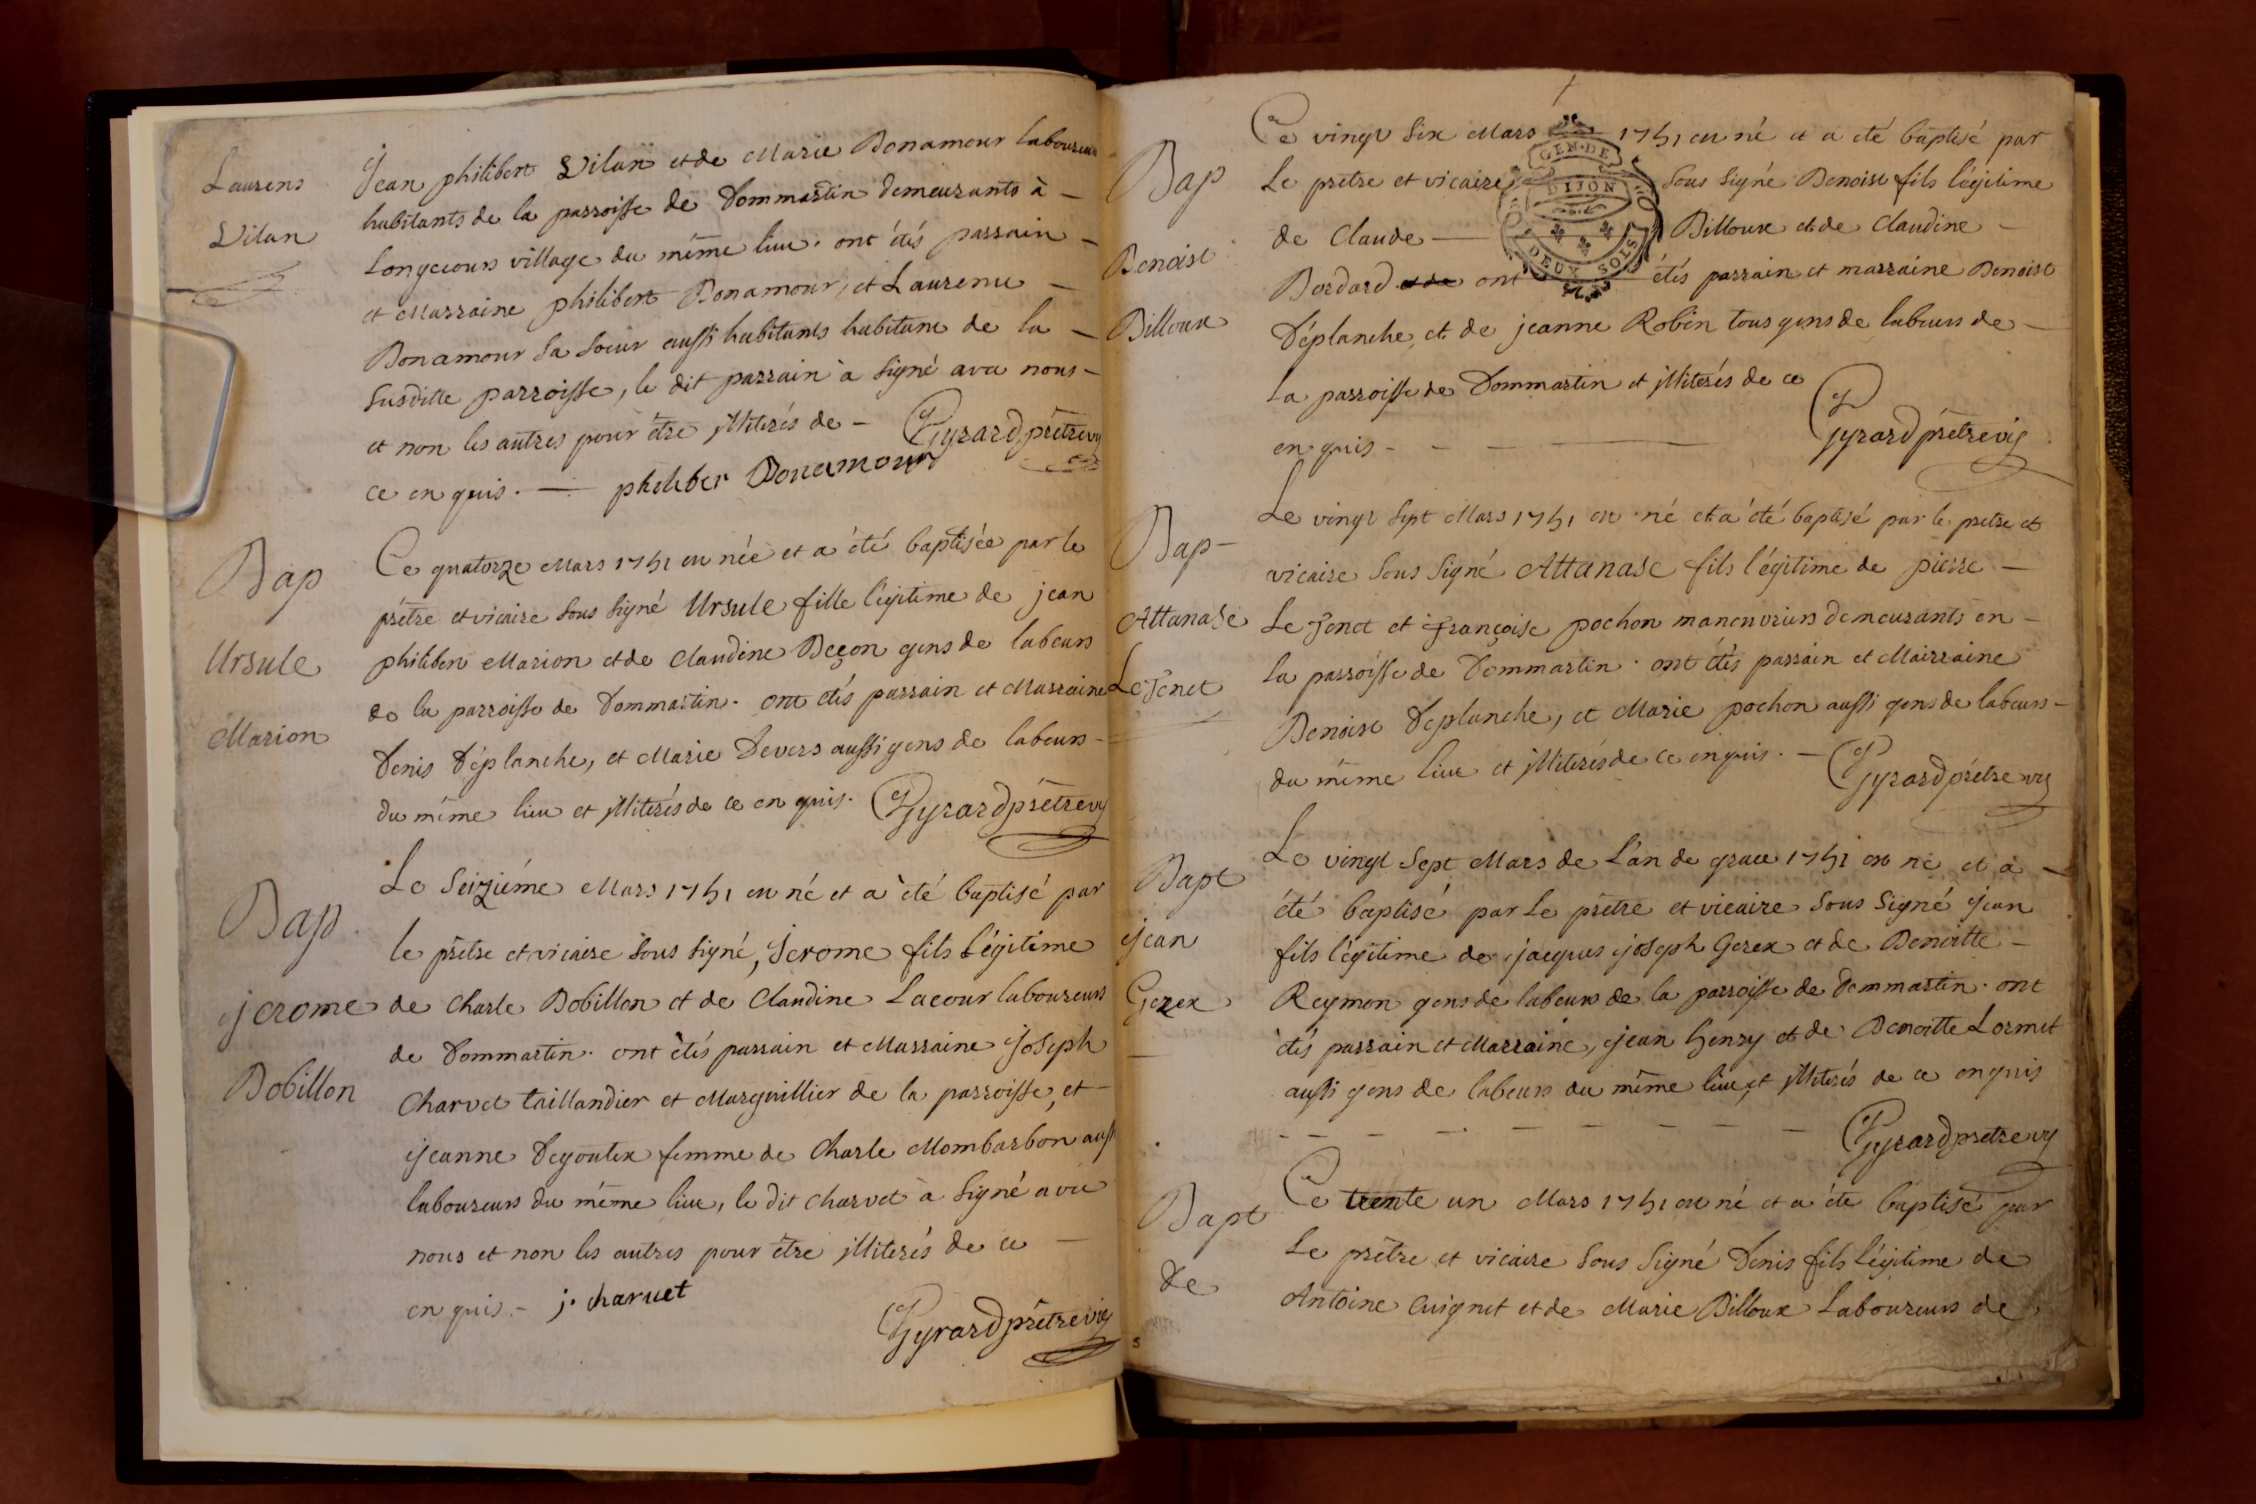 Laurens
Vilan
Jean philibert Vilan et de Marie Bonamour laboureurs
habitants de la parroisse de Dommartin demeurants à
Longecours village du même lieu. ont étés parrain
et Marraine philibert Bonamour, et Laurence
Bonamour sa soeur aussi habitants habitant de la
susditte parroisse, le dit parrain à signé avec nous
et non les autres pour être illiterés de - Gyrard prêtre vic
ce en quis. philiber Bonamour
Bap
Ursule
Marion
Ce quatorze Mars 1751 en née et a été baptisée par le
prêtre et vicaire sous signé Ursule fille légitime de jean
philibert Marion et de Claudine Beçon gens de labeurs
de la parroisse de Dommartin. ont étés parrain et Marraine
Denis Déplanche, et Marie Devers aussi gens de labeurs
du même lieu et illiterés de ce en quis. Gyrard prêtre vic
Bap
jerome
Bobillon
Le Seizième Mars 1751 en né et a été baptisé par
le prêtre et vicaire sous signé, Jerome fils légitime
de Charle Bobillon et de Claudine Lacour laboureurs
de Dommartin. ont étés parrain et Marraine Joseph
Charvet taillandier et Marguillier de la parroisse, et
jeanne Degoutex femme de Charle Mombarbon aussi
laboureurs du même lieu, le dit Charvet à signé avec
nous et non les autres pour être illiterés de ce
en quis - j. charuet
Gyrard prêtre vic
Bap
Benoist
Billoux
Ce vingt Six Mars 1751 en né et a été baptisé par
Le prêtre et vicaire sous signé Benoist fils légitime
de Claude Billoux et de Claudine
Bordard ont étés parrain et marraine Benoist
GEN. DE
DIJON
DEUX SOLS
Déplanche, et de jeanne Robin tous gens de labeurs de
la parroisse de Dommartin et illiterés de ce
en quis - Gyrard prêtre vic
Bap
Attanase
Le Jenet
Le vingt Sept Mars 1751 en né et a été baptisé par le prêtre et
vicaire sous signé Attanase fils légitime de pierre
Le Jenet et Françoise pochon manouvriers demeurants en
la parroisse de Dommartin. ont étés parrain et Mairraine
Benoist Déplanche, et Marie pochon aussi gens de labeurs
du même lieu et illiterés de ce en quis. - Gyrard prêtre vic
Bapt
jean
Gerex
Le vingt Sept Mars de L'an de grace 1751 en né et a
été baptisé par Le prêtre et vicaire sous signé jean
fils légitime de jacques joseph Gerex et de Benoitte
Reymon gens de labeurs de la parroisse de Dommartin. ont
étés parrain et Marraine, jean henry et de Benoitte Lormet
aussi gens de labeurs du même lieu, et illiterés de ce en quis
Gyrard prêtre vic
Bapt
De
Ce trente un Mars 1751 en né et a été baptisé par
Le prêtre et vicaire sous signé Denis fils légitime de
Antoine Cuignet et de Marie Billoux Laboureurs de